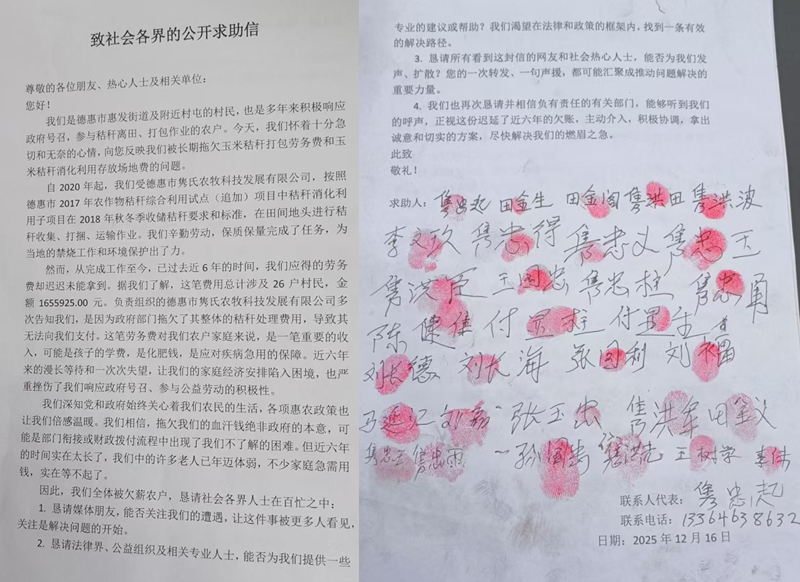 致社会各界的公开求助信
尊敬的各位朋友、热心人士及相关单位:
您好!
我们是德惠市惠发街道及附近村屯的村民,也是多年来积极响应
政府号召,参与秸秆离田、打包作业的农户。今天,我们怀着十分急
切和无奈的心情,向您反映我们被长期拖欠玉米秸秆打包劳务费和玉
米秸秆消化利用存放场地费的问题。
自 2020 年起,我们受德惠市隽氏农牧科技发展有限公司,按照
德惠市 2017 年农作物秸秆综合利用试点(追加)项目中秸秆消化利
用子项目在 2018 年秋冬季收储秸秆要求和标准,在田间地头进行秸
秆收集、打捆、运输作业。我们辛勤劳动,保质保量完成了任务,为
当地的禁烧工作和环境保护出了力。
然而,从完成工作至今,已过去近 6 年的时间,我们应得的劳务
费却迟迟未能拿到。据我们了解,这笔费用总计涉及 26 户村民,金
额 1655925.00 元。负责组织的德惠市隽氏农牧科技发展有限公司多
次告知我们,是因为政府部门拖欠了其整体的秸秆处理费用,导致其
无法向我们支付。这笔劳务费对我们农户家庭来说,是一笔重要的收
入,可能是孩子的学费,是化肥钱,是应对疾病急用的保障。近六年
来的漫长等待和一次次失望,让我们的家庭经济安排陷入困境,也严
重挫伤了我们响应政府号召、参与公益劳动的积极性。
我们深知党和政府始终关心着我们农民的生活,各项惠农政策也
让我们倍感温暖。我们相信,拖欠我们的血汗钱绝非政府的本意,可
能是部门衔接或财政拨付流程中出现了我们不了解的困难。但近六年
的时间实在太长了,我们中的许多老人已年迈体弱,不少家庭急需用
钱,实在等不起了。
因此,我们全体被欠薪农户,恳请社会各界人士在百忙之中:
1. 恳请媒体朋友,能否关注我们的遭遇,让这件事被更多人看见,
关注是解决问题的开始。
2. 恳请法律界、公益组织及相关专业人士,能否为我们提供一些
专业的建议或帮助?我们渴望在法律和政策的框架内,找到一条有效
的解决路径。
3. 恳请所有看到这封信的网友和社会热心人士,能否为我们发
声、扩散?您的一次转发、一句声援,都可能汇聚成推动问题解决的
重要力量。
4. 我们也再次恳请并相信负有责任的有关部门,能够听到我们
的呼声,正视这份迟延了近六年的欠账,主动介入,积极协调,拿出
诚意和切实的方案,尽快解决我们的燃眉之急。
此致
敬礼!
求助人: 隽忠起 田金生 田金阁 隽洪田 隽洪波
李文欣 隽忠得 隽忠义 隽忠玉
隽洪臣 王国忠 隽忠柱 隽忠甫
陈健伟 付显柱 付显生
刘长德 刘长海 张国利 刘福
马延江 刘 张玉忠 隽洪军 田金义
隽忠 隽忠雨 孙国安 隽洪志 王树学 李伟
联系人代表: 隽忠起
联系电话: 13364638632
日期: 2025 年 12 月 16 日